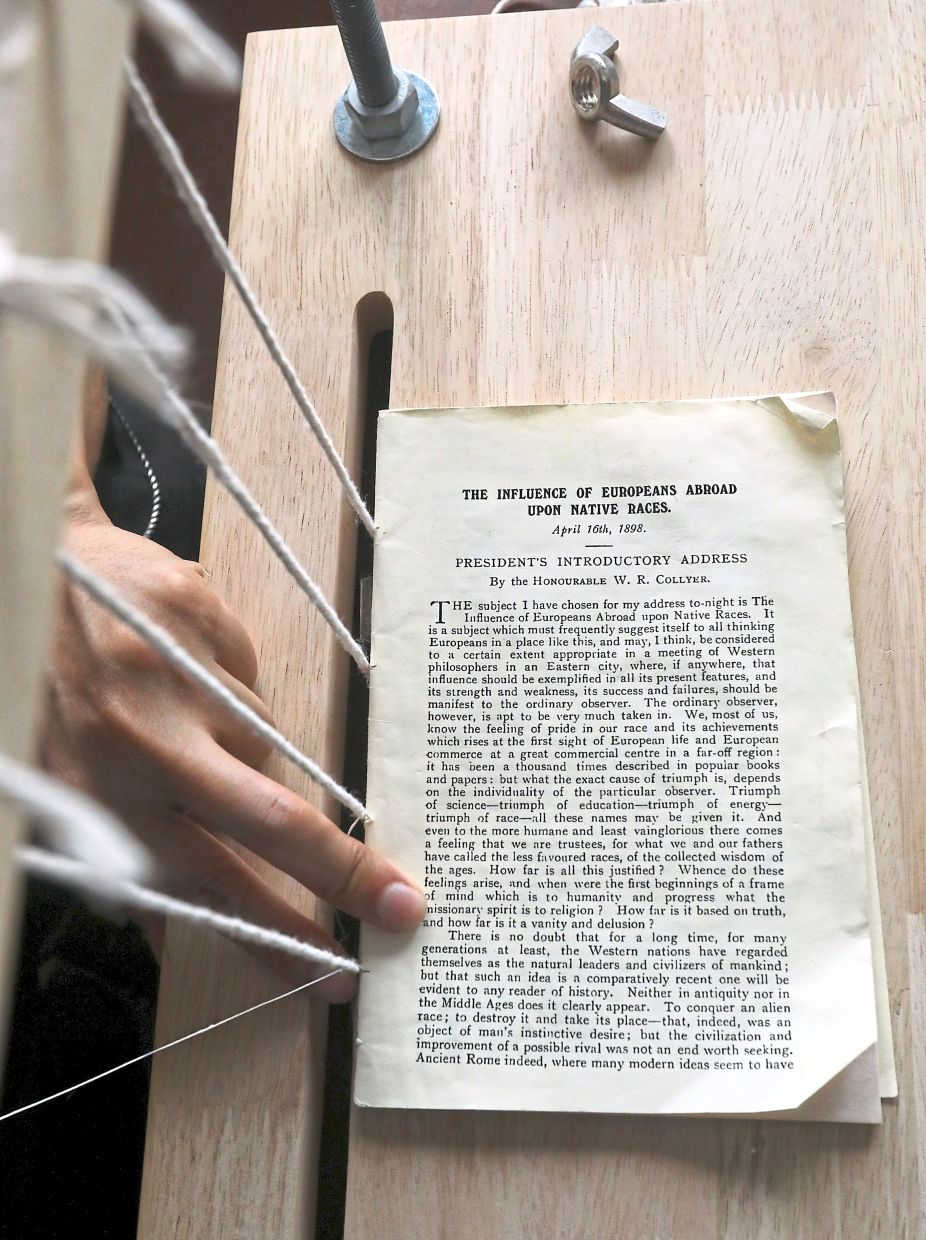 THE INFLUENCE OF EUROPEANS ABROAD
UPON NATIVE RACES.
April 16th, 1898.
PRESIDENT'S INTRODUCTORY ADDRESS
By the HONOURABLE W. R. COLLYER.
THE subject I have chosen for my address to-night is The
Influence of Europeans Abroad upon Native Races. It
is a subject which must frequently suggest itself to all thinking
Europeans in a place like this, and may, I think, be considered
to a certain extent appropriate in a meeting of Western
philosophers in an Eastern city, where, if anywhere, that
influence should be exemplified in all its present features, and
its strength and weakness, its success and failures, should be
manifest to the ordinary observer. The ordinary observer,
however, is apt to be very much taken in. We, most of us,
know the feeling of pride in our race and its achievements
which rises at the first sight of European life and European
commerce at a great commercial centre in a far-off region:
it has been a thousand times described in popular books
and papers: but what the exact cause of triumph is, depends
on the individuality of the particular observer. Triumph
of science—triumph of education—triumph of energy—
triumph of race—all these names may be given it. And
even to the more humane and least vainglorious there comes
a feeling that we are trustees, for what we and our fathers
have called the less favoured races, of the collected wisdom of
the ages. How far is all this justified? Whence do these
feelings arise, and when were the first beginnings of a frame
of mind which is to humanity and progress what the
missionary spirit is to religion? How far is it based on truth,
and how far is it a vanity and delusion?
There is no doubt that for a long time, for many
generations at least, the Western nations have regarded
themselves as the natural leaders and civilizers of mankind;
but that such an idea is a comparatively recent one will be
evident to any reader of history. Neither in antiquity nor in
the Middle Ages does it clearly appear. To conquer an alien
race; to destroy it and take its place—that, indeed, was an
object of man's instinctive desire; but the civilization and
improvement of a possible rival was not an end worth seeking.
Ancient Rome indeed, where many modern ideas seem to have